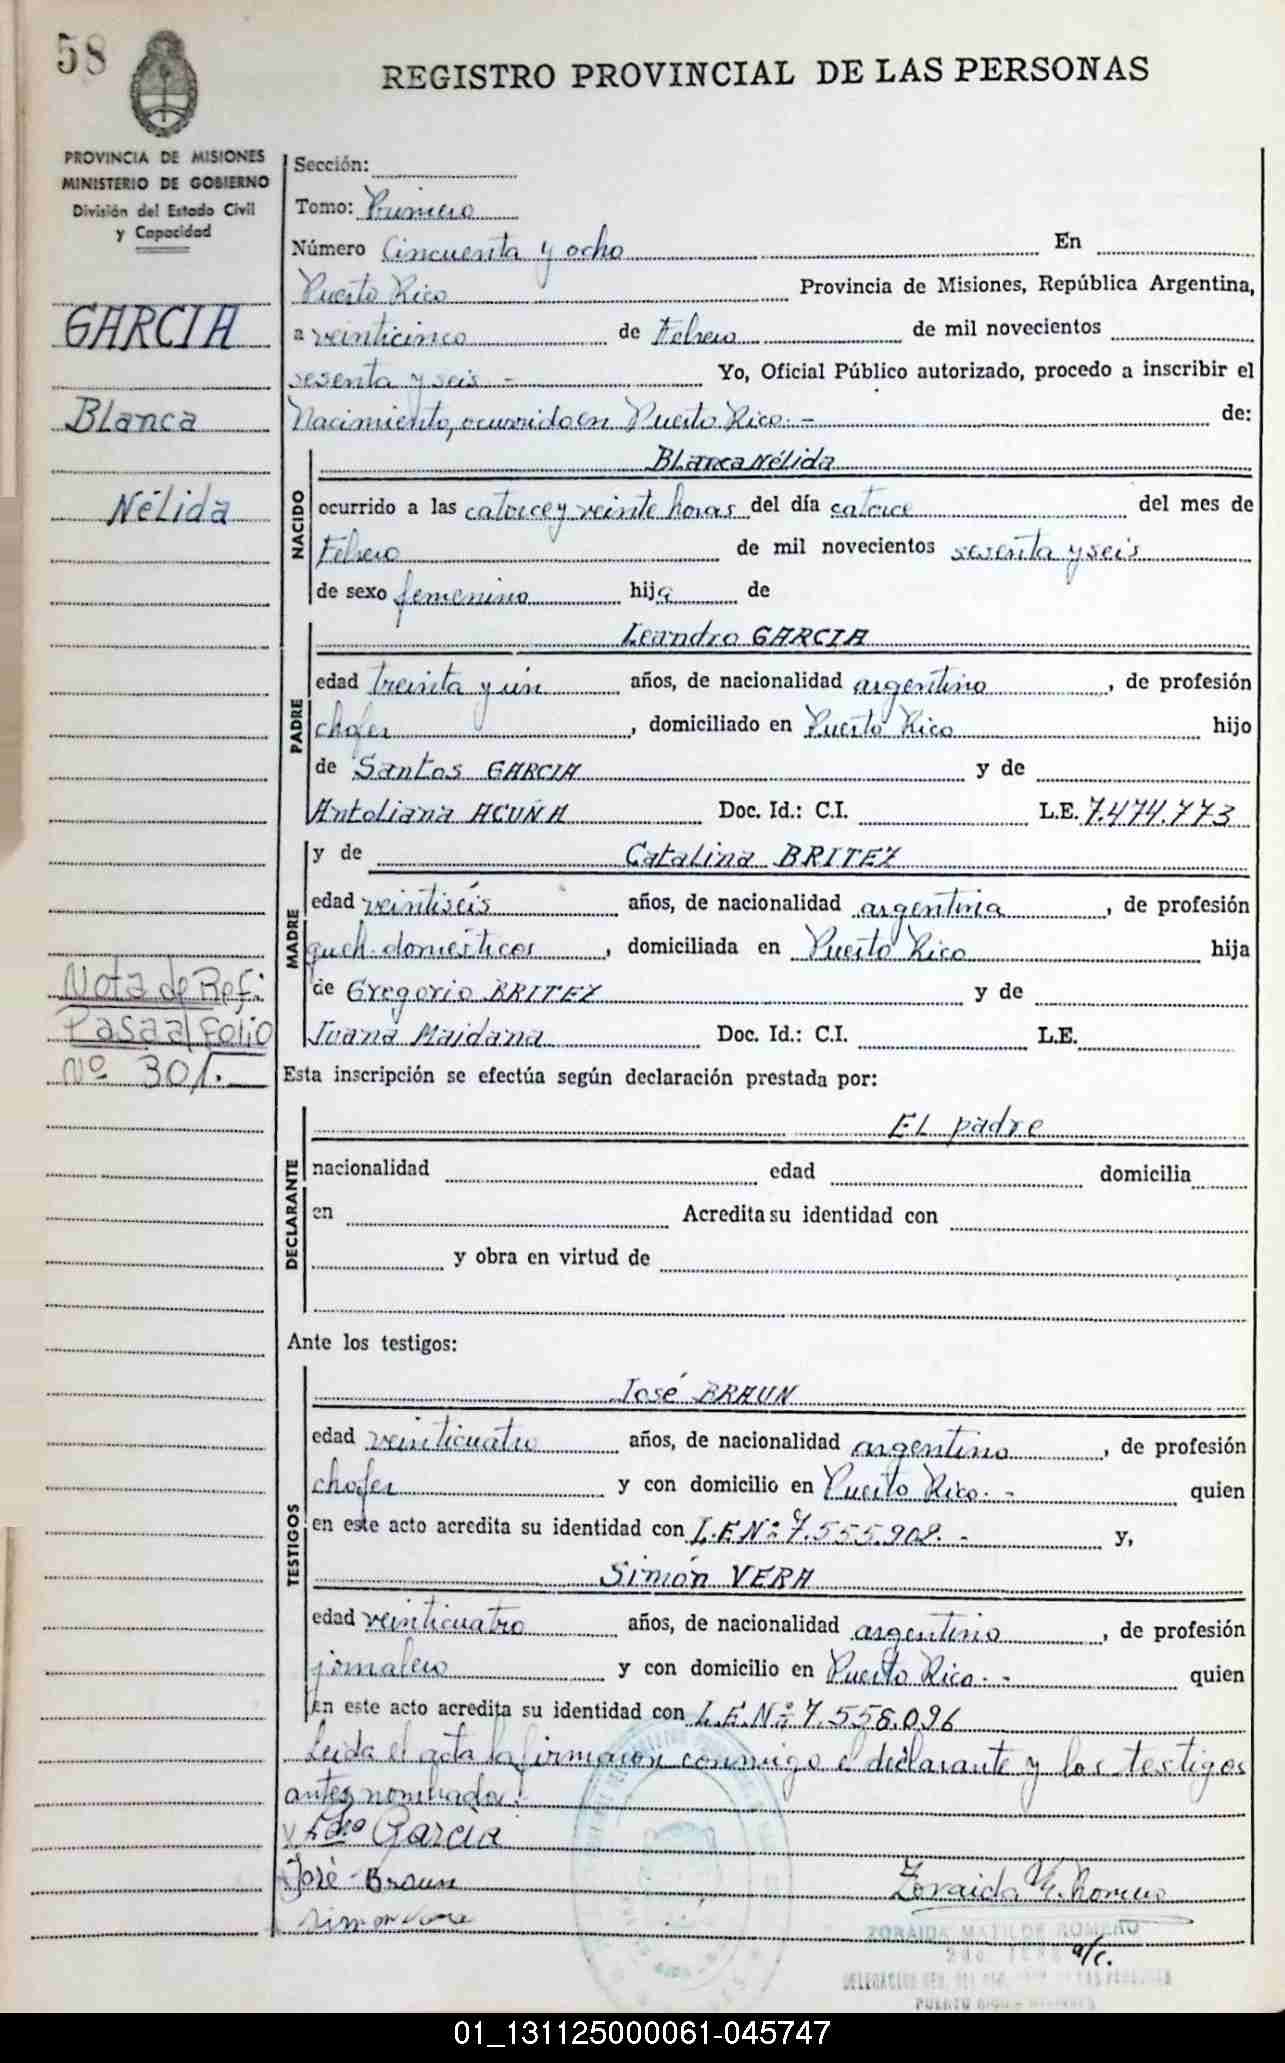 58
REGISTRO PROVINCIAL DE LAS PERSONAS
PROVINCIA DE MISIONES
MINISTERIO DE GOBIERNO
División del Estado Civil
y Capacidad
GARCIA
Blanca
Nélida
Nota de Ref:
Pasa al folio
Nº 301.-
Sección:
Tomo: Primero
Número Cincuenta y ocho En
Puerto Rico Provincia de Misiones, República Argentina,
a veinticinco de Febrero de mil novecientos
sesenta y seis - Yo, Oficial Público autorizado, procedo a inscribir el
Nacimiento, ocurrido en Puerto Rico.- de:
NACIDO
Blanca Nélida
ocurrido a las catorce y veinte horas del día catorce del mes de
Febrero de mil novecientos sesenta y seis
de sexo femenino hija de
PADRE
Leandro GARCIA
edad treinta y un años, de nacionalidad argentino, de profesión
chofer, domiciliado en Puerto Rico hijo
de Santos GARCIA y de
Antoliana ACUÑA Doc. Id.: C.I. L.E. 7.474.773
MADRE
y de Catalina BRITEZ
edad veintiséis años, de nacionalidad argentina, de profesión
queh. domésticos, domiciliada en Puerto Rico hija
de Gregorio BRITEZ y de
Juana Maidana Doc. Id.: C.I. L.E.
Esta inscripción se efectúa según declaración prestada por:
DECLARANTE
El padre
nacionalidad edad domicilia
en Acredita su identidad con
y obra en virtud de
Ante los testigos:
TESTIGOS
José BRAUN
edad veinticuatro años, de nacionalidad argentino, de profesión
chofer y con domicilio en Puerto Rico.- quien
en este acto acredita su identidad con L.E.Nº 7.555.908.- y,
Simón VERA
edad veinticuatro años, de nacionalidad argentino, de profesión
jornalero y con domicilio en Puerto Rico.- quien
En este acto acredita su identidad con L.E.Nº 7.558.096
Leida el acta la firmaron conmigo el declarante y los testigos
antes nombrados.
Ldro Garcia
José Braun
Simon Vera
Zoraida M. Romero
ZORAIDA MATILDE ROMERO
a/c.
PUERTO RICO - MISIONES
01_131125000061-045747